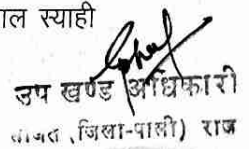 ाल स्याही
उप खण्ड अधिकारी
जिला-पाली) राज